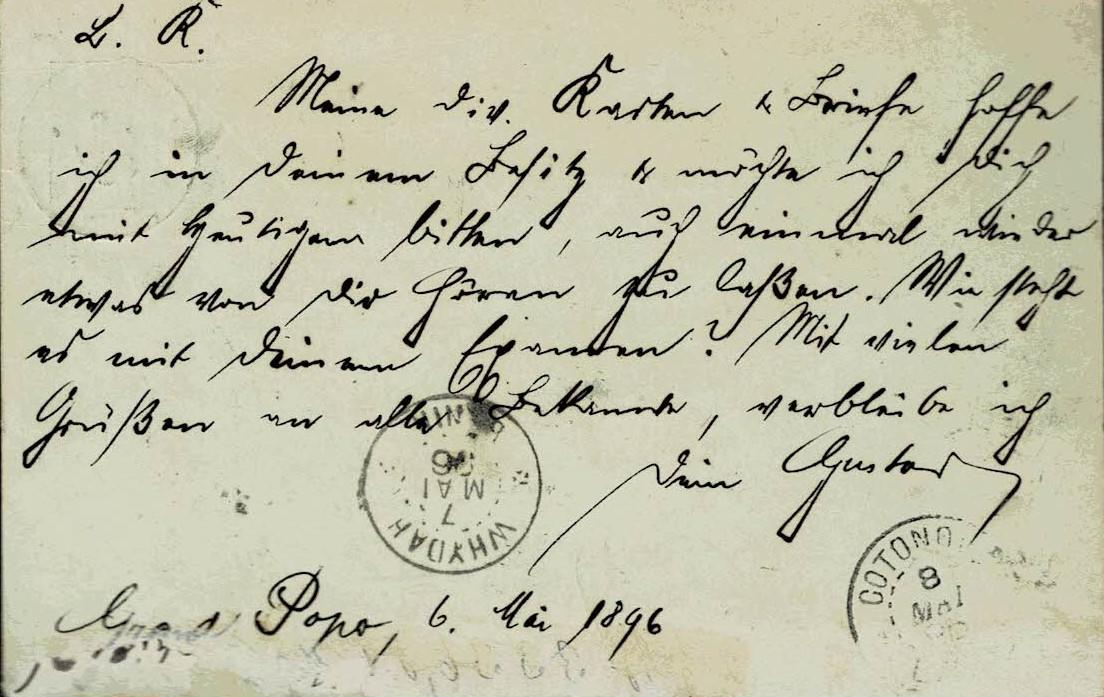 L. K.
Meine div. Karten & Briefe hoffe
ich in Deinem Besitz & möchte ich Dich
mit Heutigem bitten, auch einmal wieder
etwas von Dir hören zu laßen. Wie steht
es mit Deinem Examen? Mit vielen
Grüßen an alle Bekannte, verbleibe ich
Dein Gustav
WHYDAH
7
MAI
96
BENIN
COTONO
8
MAI
Grand Popo, 6. Mai 1896